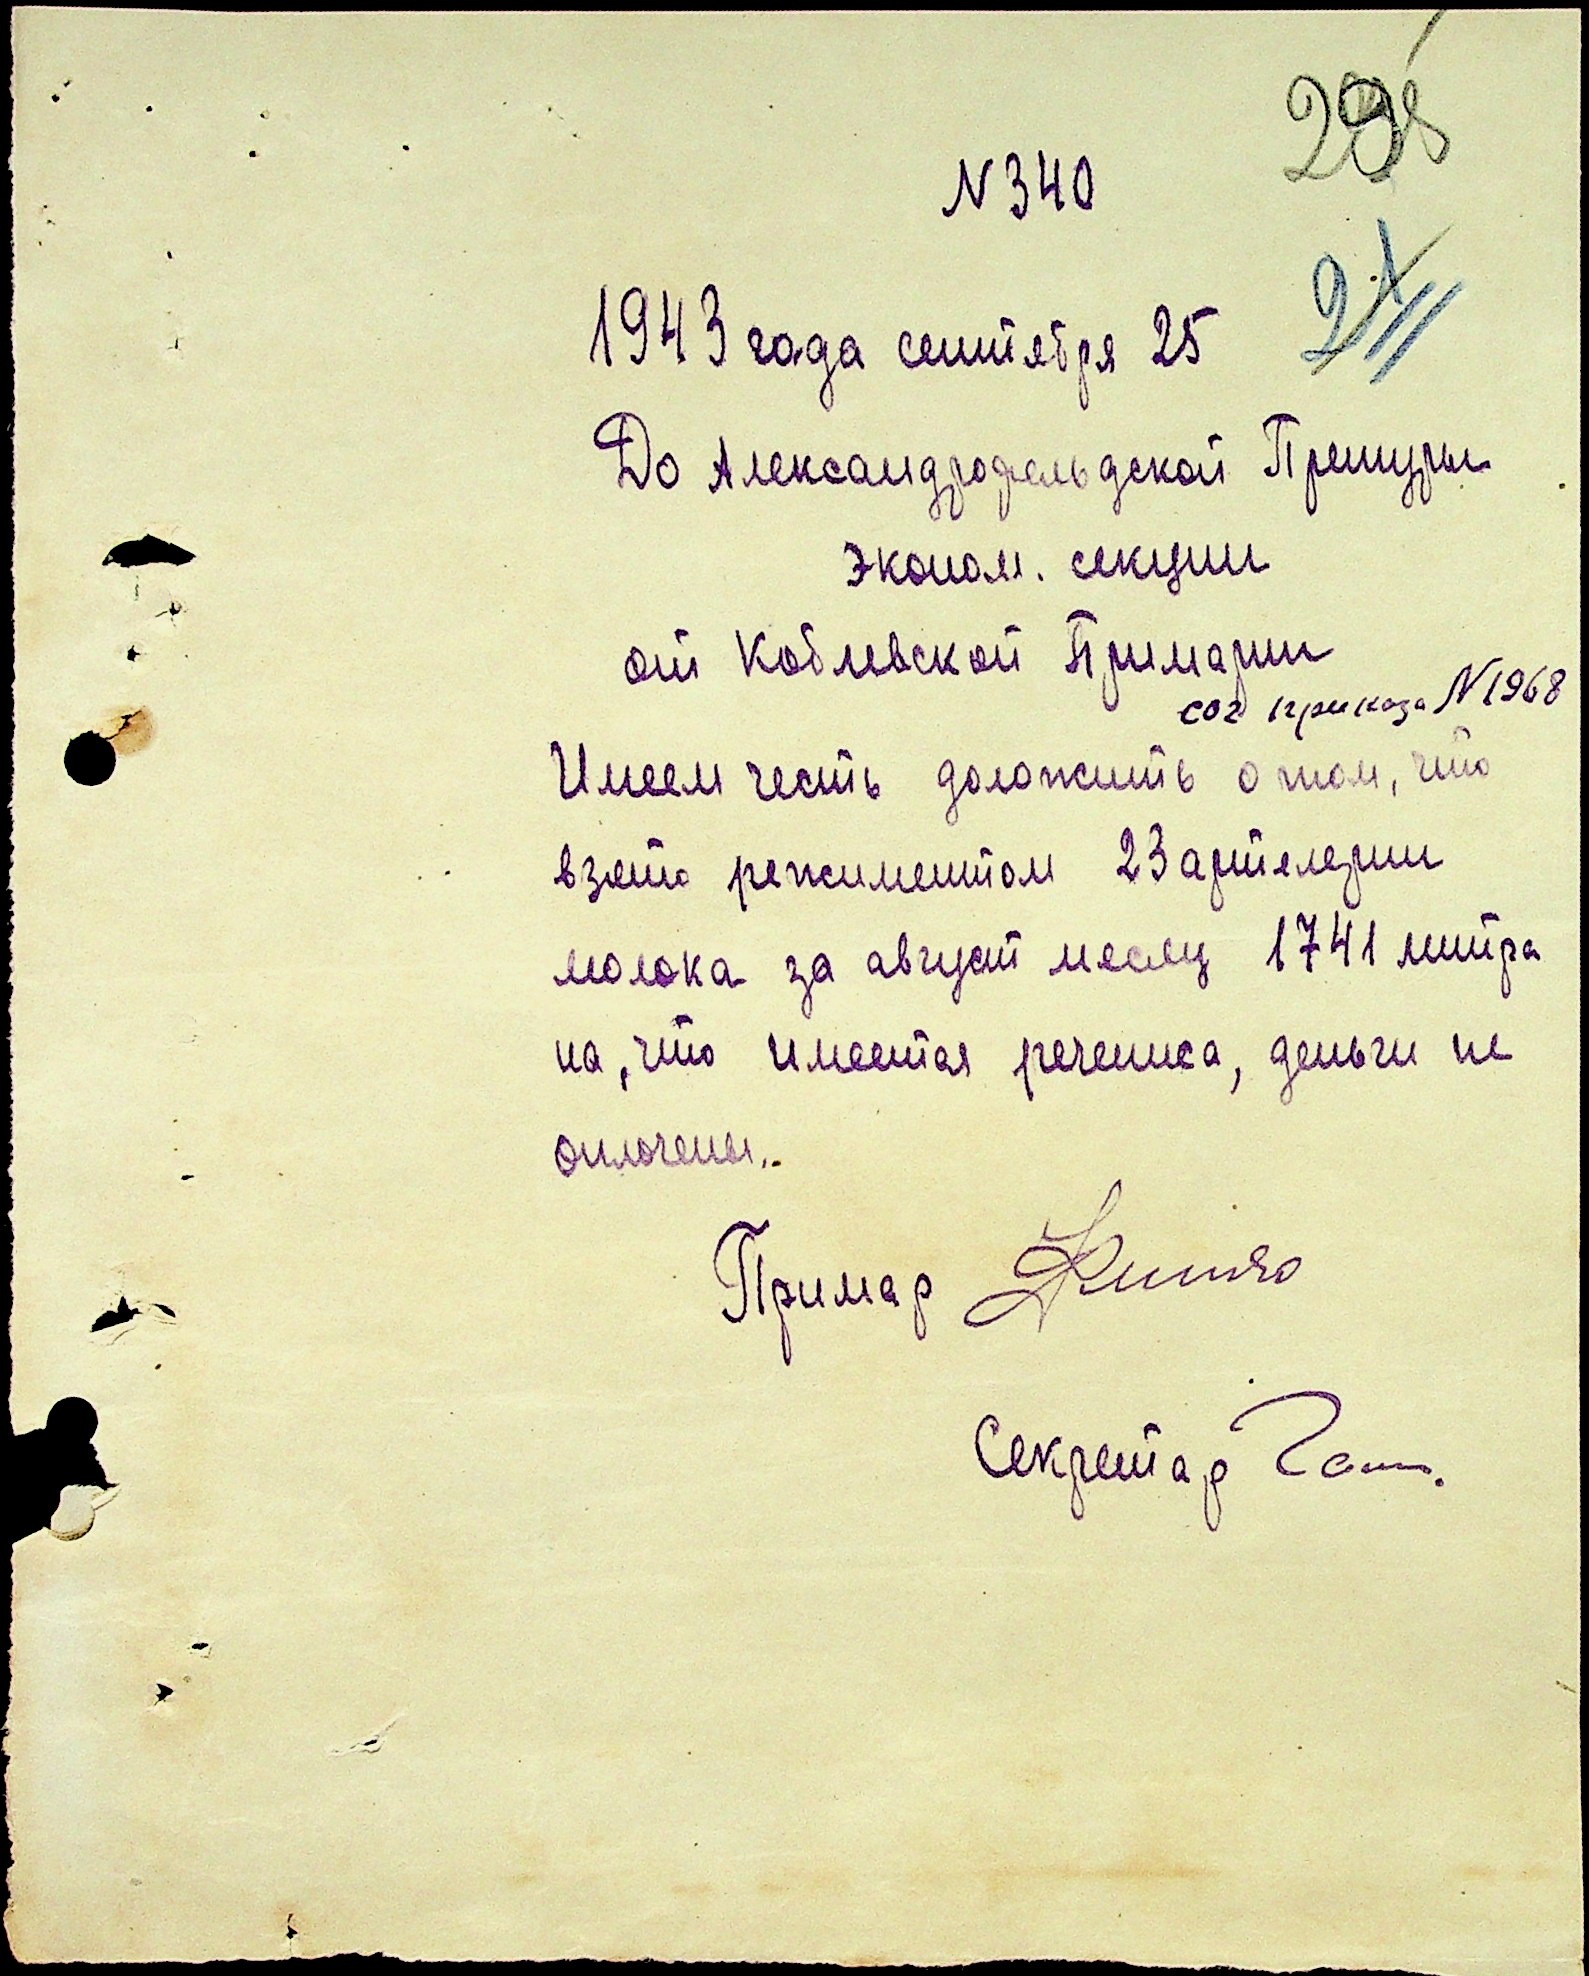 N 340
1943 года сентября 25
До Александрофельдской Претуры
Эконом. секции
от Коблевской Примарии
сог приказа N 1968
Имеем честь доложить о том, что
взято режиментом 23 артелерии
молока за август месяц 1741 литра
на, что имеется реченика, деньги не
оплочены..
Примар
Секретар